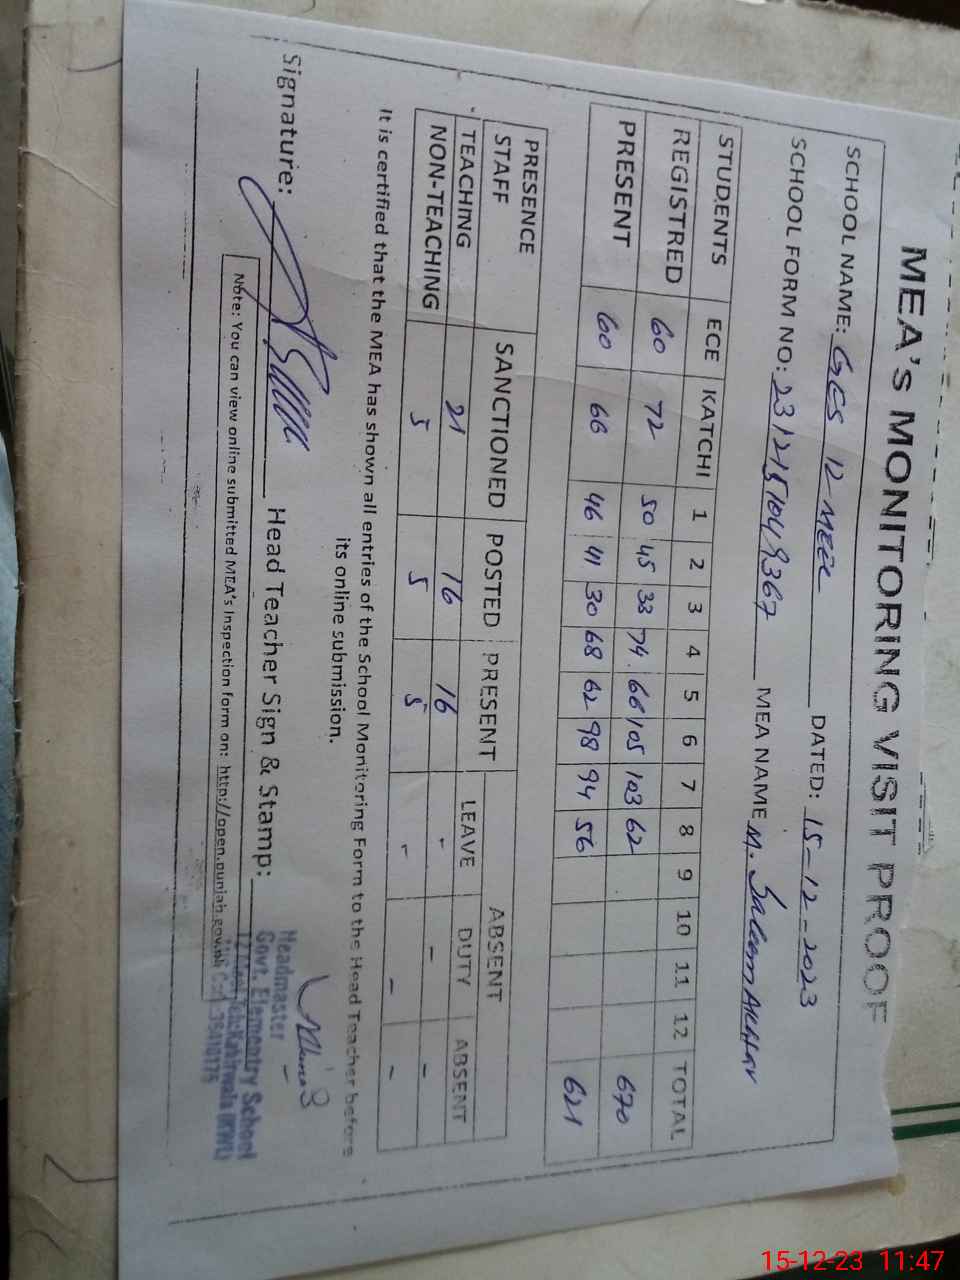 MEA's MONITORING VISIT PROOF
SCHOOL NAME: GES 12-MEEL DATED: 15-12-2023
SCHOOL FORM NO: MEA NAME M. Saleem Akhtar
STUDENTS ECE KATCHI 1 2 3 4 5 6 7 8 9 10 11 12 TOTAL
REGISTRED 60 72 50 45 33 74 66 105 103 62 670
PRESENT 60 66 46 41 30 68 62 98 94 56 621
PRESENCE STAFF SANCTIONED POSTED PRESENT ABSENT
LEAVE DUTY ABSENT
TEACHING 21 16 16 - - -
NON-TEACHING 5 5 5 - - -
It is certified that the MEA has shown all entries of the School Monitoring Form to the Head Teacher before
its online submission.
Signature: Head Teacher Sign & Stamp:
Headmaster
Govt. Elementry School
Note: You can view online submitted MEA's Inspection form on: http://open.punjab.gov.pk
15-12-23 11:47